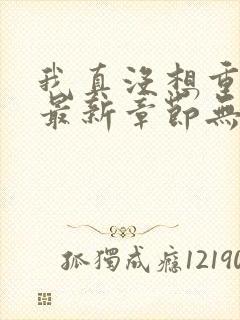 我真沒想重
最新章節無
孤獨成癮12190